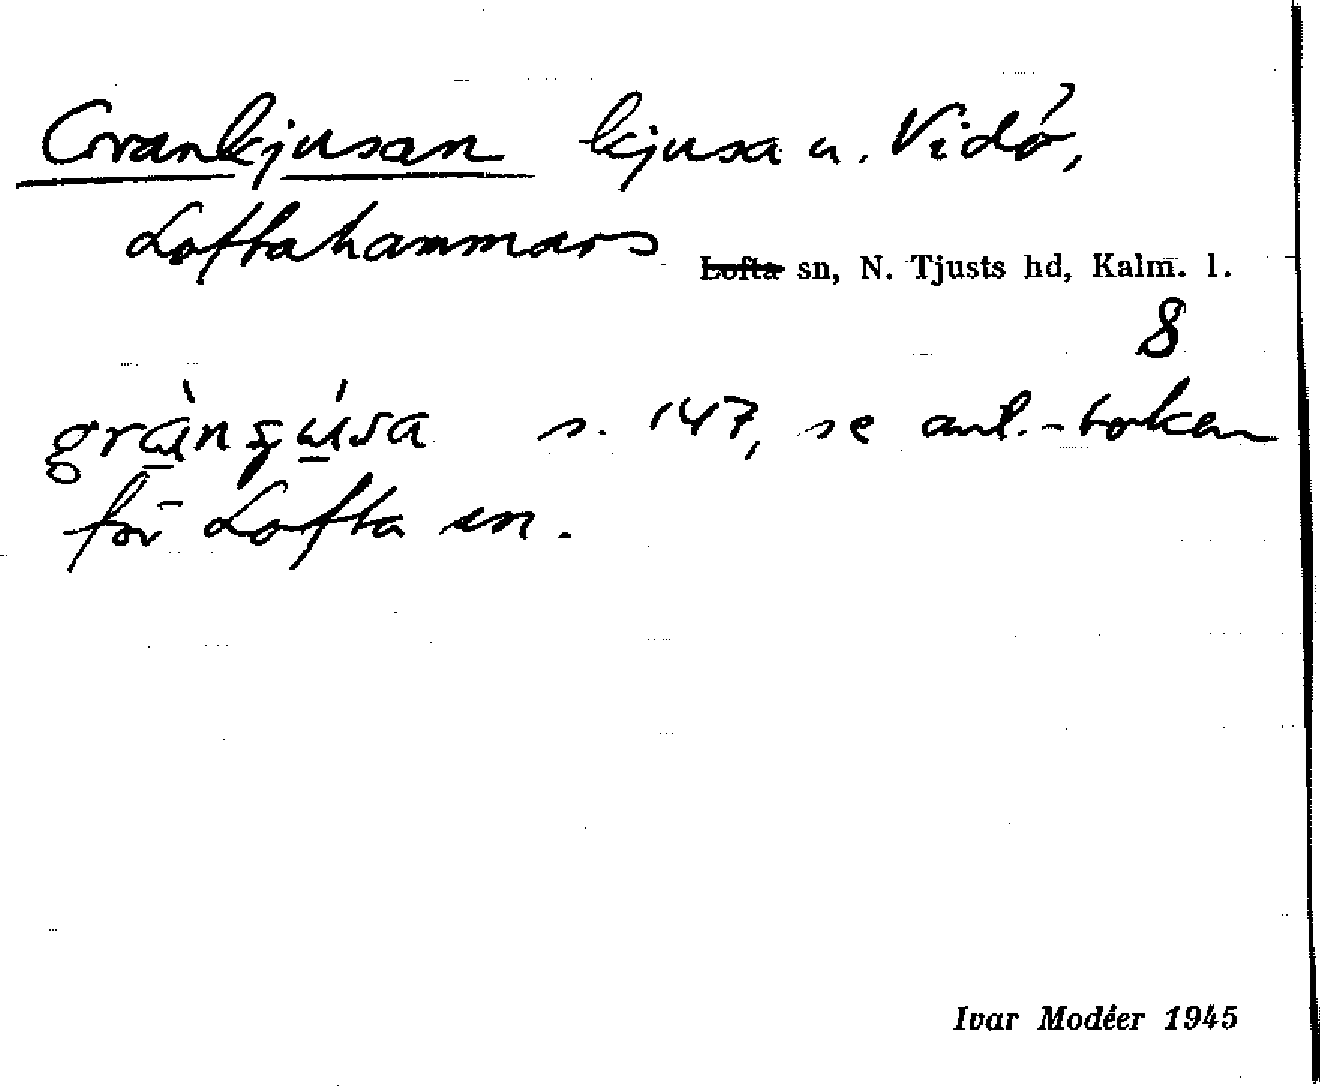 Grankjusan kjusa u. Vidö,
Loftahammars
Lofta sn, N. Tjusts hd, Kalm. l.
8
s. 147, se ant.-boken
för Lofta sn.
Ivar Modéer 1945